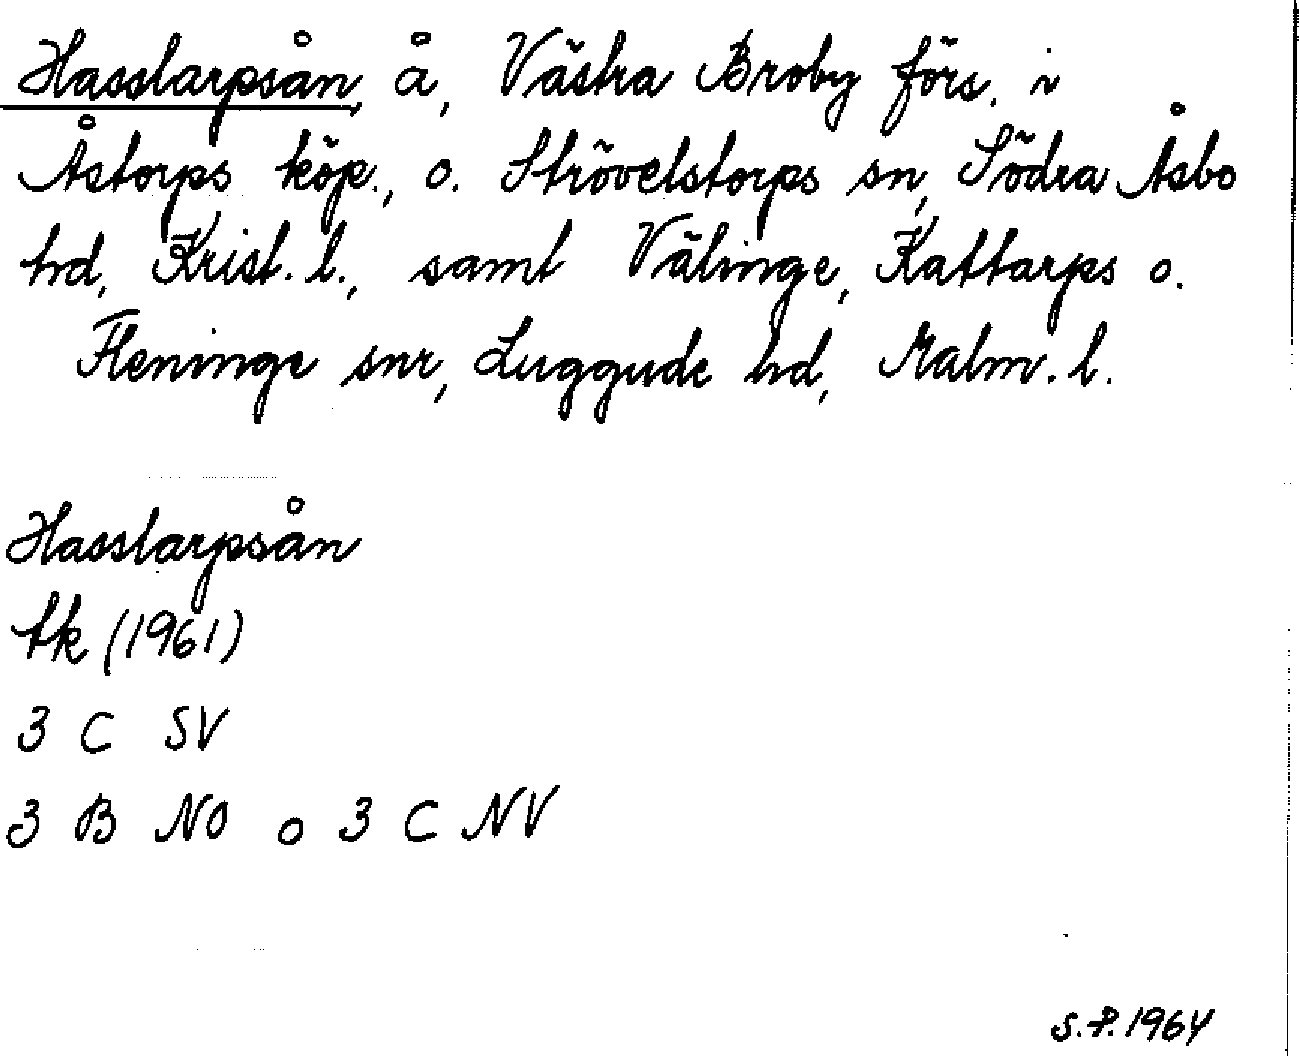 Hasslarpsån, å, Västra Broby förs. i
Åstorps köp., o. Strövelstorps sn, Södra Åsbo
hd, Krist. l., samt Välinge, Kattarps o.
Fleninge snr, Luggude hd, Malm. l.
Hasslarpsån
tk (1961)
3 C SV
3 B NO o 3 C NV
S.P. 1964